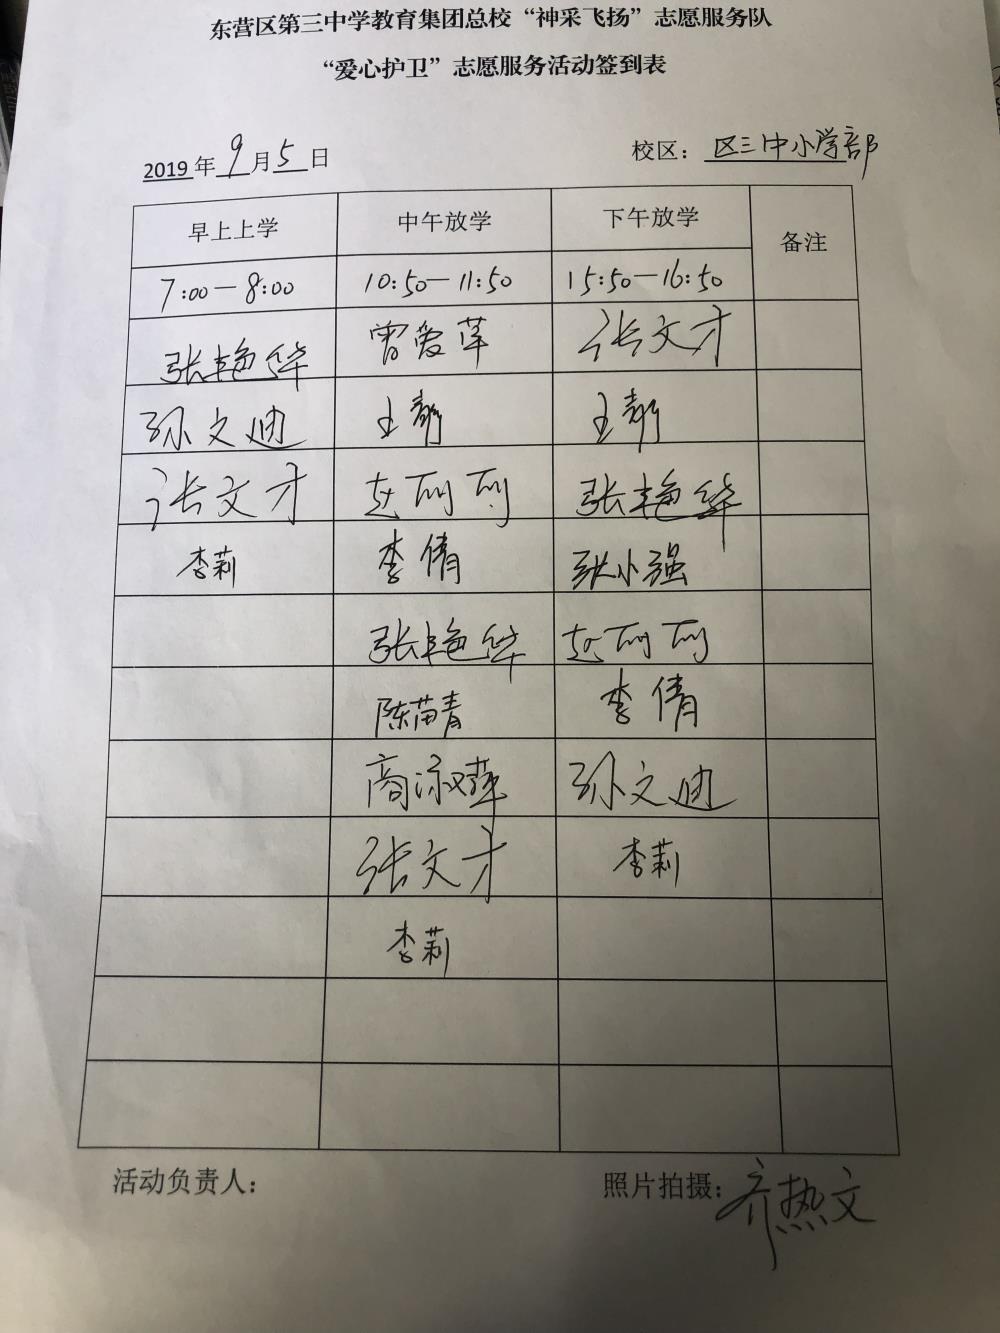 东营区第三中学教育集团总校“神采飞扬”志愿服务队
“爱心护卫”志愿服务活动签到表
2019年9月5日 校区：区三中小学部
早上上学 中午放学 下午放学 备注
7:00—8:00 10:50—11:50 15:50—16:50
张艳华 曾爱苹 张文才
孙文迪 王静 王静
张文才 赵丽丽 张艳华
李莉 李倩 张小强
张艳华 赵丽丽
陈苗青 李倩
商淑萍 孙文迪
张文才 李莉
李莉
活动负责人： 照片拍摄：齐热文